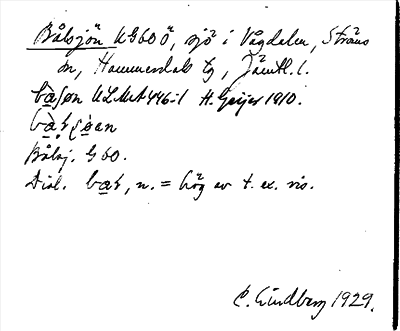 Bålsjön KG60Ö, sjö i Vågdalen, Ströms
sn, Hammerdals tg, Jämtl. l.
ULMA 446:1 H. Geijer 1910.
Bålsj. G 60.
Dial. n. = hög av t. ex. ris.
C. Lindberg 1929.